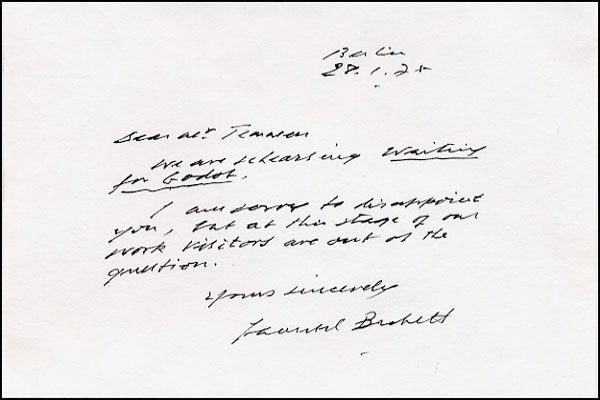 Berlin
28.1.75
Dear Mr
We are rehearsing Waiting
for Godot.
I am sorry to disappoint
you, but at this stage of our
work visitors are out of the
question.
Yours sincerely
Samuel Beckett